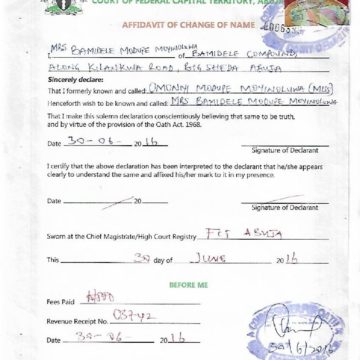 COURT OF FEDERAL CAPITAL TERRITORY,
AFFIDAVIT OF CHANGE OF NAME
MRS BAMIDELE MODUPE MOYINOLUWA of BAMIDELE COMPOUND
ALONG ROAD, ABUJA
Sincerely declare:
That I formerly known and called: OMONIYI MODUPE MOYINOLUWA (MISS)
Henceforth wish to be known and called: MRS BAMIDELE MODUPE MOYINOLUWA
That I make this solemn declaration conscientiously believing that same to be truth,
and by virtue of the provision of the Oath Act. 1968.
Date 30-06- 2016
Signature of Declarant
I certify that the above declaration has been interpreted to the declarant that he/she appears
clearly to understand the same and affixed his/her mark to it in my presence.
Date 20
Signature of Declarant
Sworn at the Chief Magistrate/High Court Registry FCT ABUJA
This 30 day of JUNE 2016
BEFORE ME
Fees Paid
Revenue Receipt No.
Date 30-06- 2016
30/6/2016